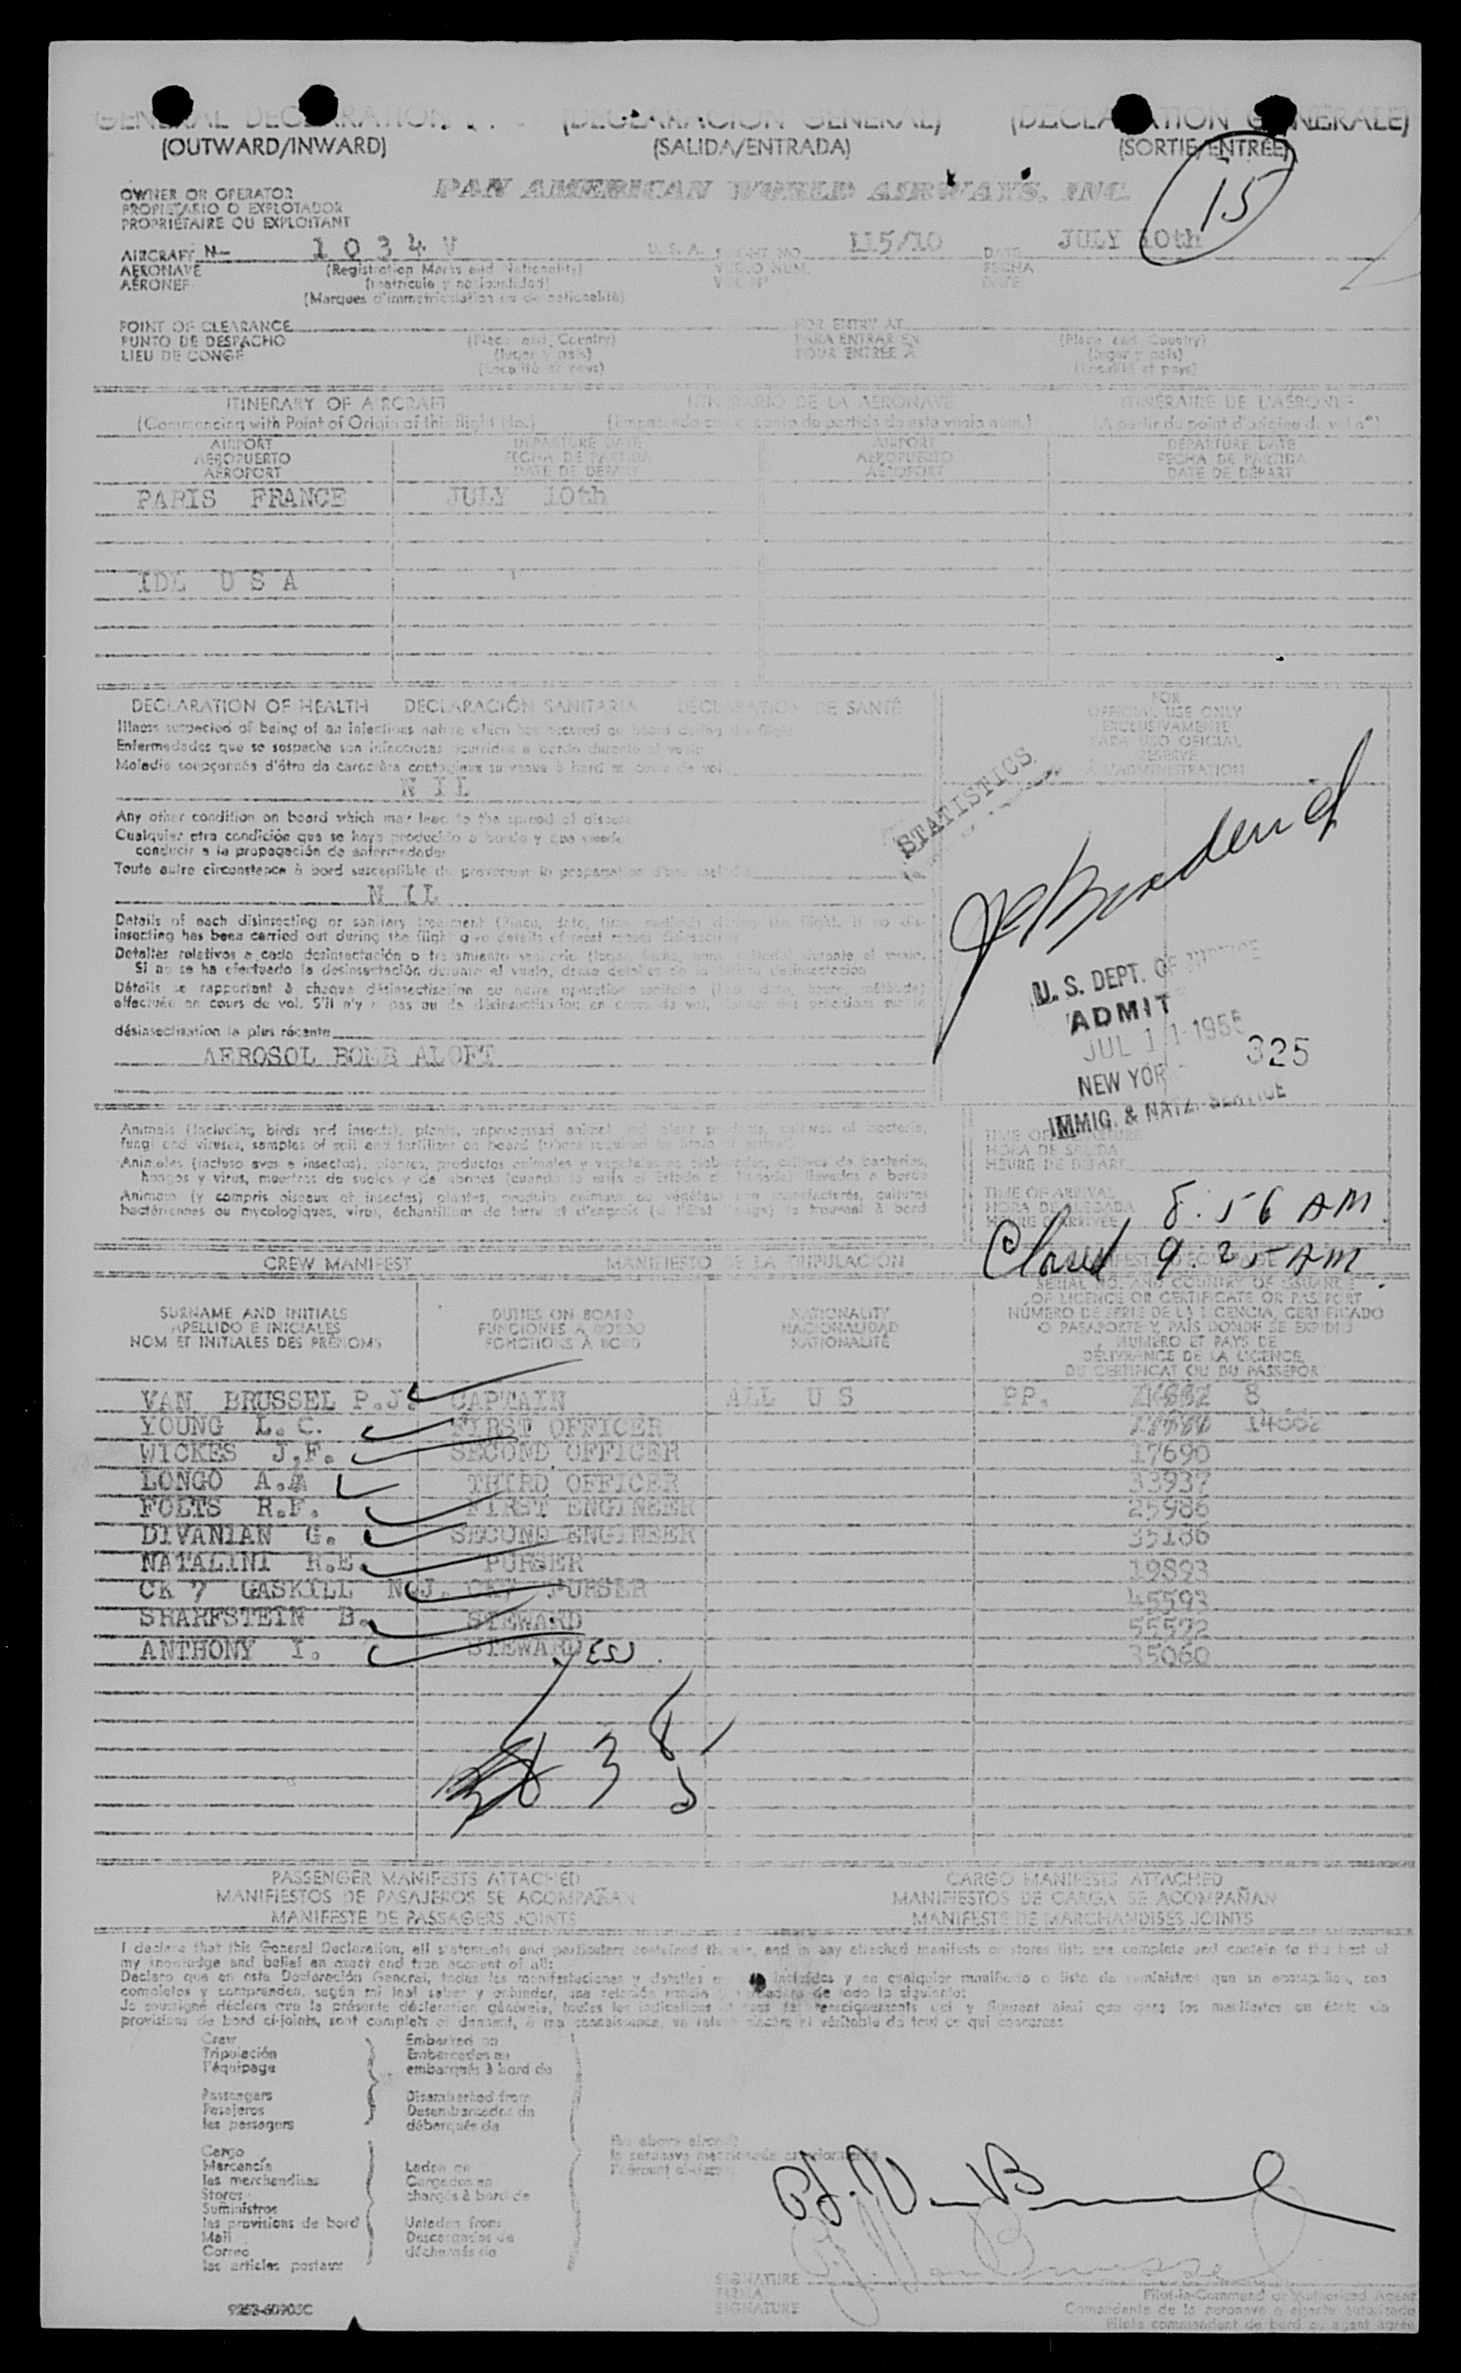 GENERAL DECLARATION (DECLARACIÓN GENERAL) (DÉCLARATION GÉNÉRALE)
(OUTWARD/INWARD) (SALIDA/ENTRADA) (SORTIE/ENTRÉE)
15
OWNER OR OPERATOR PAN AMERICAN WORLD AIRWAYS, INC.
PROPIETARIO O EXPLOTADOR
PROPRIÉTAIRE OU EXPLOITANT
AIRCRAFT N- 1034V U.S.A. FLIGHT NO. 115/10 DATE JULY 10th
AERONAVE (Registration Marks and Nationality) VUELO NUM. FECHA
AÉRONEF (matrícula y nacionalidad) DATE
(Marques d'immatriculation ou de nationalité)
POINT OF CLEARANCE FOR ENTRY AT
PUNTO DE DESPACHO (Place and Country) PARA ENTRAR EN (Place and Country)
LIEU DE CONGÉ (lugar y país) POUR ENTRÉE A (lugar y país)
(Localité et pays) (Localité et pays)
ITINERARY OF AIRCRAFT ITINERARIO DE LA AERONAVE ITINÉRAIRE DE L'AÉRONEF
(Commencing with Point of Origin of this flight No.) (Empezando con el punto de partida de este viaje núm.) (A partir du point d'origine du vol n°)
AIRPORT DEPARTURE DATE AIRPORT DEPARTURE DATE
AEROPUERTO FECHA DE PARTIDA AEROPUERTO FECHA DE PARTIDA
AÉROPORT DATE DE DÉPART AÉROPORT DATE DE DÉPART
PARIS FRANCE JULY 10th
IDL U S A
DECLARATION OF HEALTH DECLARACIÓN SANITARIA DÉCLARATION DE SANTÉ
Illness suspected of being of an infectious nature which has occurred on board during the flight
Enfermedades que se sospecha son infecciosas ocurridas a bordo durante el vuelo
Maladie soupçonnée d'être de caractère contagieux survenue à bord au cours de vol
N I L
Any other condition on board which may lead to the spread of disease
Cualquier otra condición que se haya producido a bordo y que pueda
conducir a la propagación de enfermedades
Toute autre circonstance à bord susceptible de provoquer la propagation d'une maladie
N I L
Details of each disinsecting or sanitary treatment (Place, date, time, method) during the flight. If no dis-
insecting has been carried out during the flight give details of most recent disinsecting
Detalles relativos a cada desinsectación o tratamiento sanitario durante el vuelo.
Si no se ha efectuado la desinsectación durante el vuelo, dense detalles de la última desinsectación
Détails se rapportant à chaque désinsectisation ou autre opération sanitaire (lieu, date, heure, méthode)
effectuée en cours de vol. S'il n'y a pas eu de désinsectisation en cours de vol, donner des précisions sur la
désinsectisation la plus récente
AEROSOL BOMB ALOFT
FOR
OFFICIAL USE ONLY
EXCLUSIVAMENTE
PARA USO OFICIAL
RÉSERVÉ
À L'ADMINISTRATION
STATISTICS
U. S. DEPT. OF JUSTICE
ADMIT
JUL 11 1955
325
NEW YORK
IMMIG. & NATZ. SERVICE
Animals (including birds and insects), plants, unprocessed animal and plant products, cultures of bacteria,
fungi and viruses, samples of soil and fertilizer on board
Animales (incluso aves e insectos), plantas, productos animales y vegetales no elaborados, cultivos de bacterias,
hongos y virus, muestras de suelos y de abonos llevados a bordo
Animaux (y compris oiseaux et insectes) plantes, produits animaux ou végétaux non manufacturés, cultures
bactériennes ou mycologiques, virus, échantillons de terre et d'engrais se trouvant à bord
TIME OF DEPARTURE
HORA DE SALIDA
HEURE DE DÉPART
TIME OF ARRIVAL
HORA DE LLEGADA 8:56 AM
HEURE D'ARRIVÉE
Closed 9.25 AM.
CREW MANIFEST MANIFIESTO DE LA TRIPULACIÓN
SURNAME AND INITIALS DUTIES ON BOARD NATIONALITY SERIAL NO. AND COUNTRY OF ISSUANCE
APELLIDO E INICIALES FUNCIONES A BORDO NACIONALIDAD OF LICENCE OR CERTIFICATE OR PASSPORT
NOM ET INITIALES DES PRÉNOMS FONCTIONS À BORD NATIONALITÉ NÚMERO DE SERIE DE LA LICENCIA, CERTIFICADO
O PASAPORTE Y PAÍS DONDE SE EXPIDIÓ
NUMÉRO ET PAYS DE
DÉLIVRANCE DE LA LICENCE
DU CERTIFICAT OU DU PASSEPORT
VAN BRUSSEL P.J. CAPTAIN ALL U S PP. 8
YOUNG L.C. FIRST OFFICER
WICKES J.F. SECOND OFFICER 17690
LONGO A.A THIRD OFFICER 33937
FOLTS R.F. FIRST ENGINEER 25986
DIVANIAN G. SECOND ENGINEER 35186
NATALINI R.E. PURSER 19893
CK 7 GASKILL N.J. PURSER 45593
SHARFSTEIN B. STEWARD 55592
ANTHONY I. STEWARDess. 35060
8 3 8
PASSENGER MANIFESTS ATTACHED CARGO MANIFESTS ATTACHED
MANIFIESTOS DE PASAJEROS SE ACOMPAÑAN MANIFIESTOS DE CARGA SE ACOMPAÑAN
MANIFESTE DE PASSAGERS JOINTS MANIFESTE DE MARCHANDISES JOINTS
I declare that this General Declaration, all statements and particulars contained therein, and in any attached manifests or stores lists are complete and contain to the best of
my knowledge and belief an exact and true account of all:
Declaro que en esta Declaración General, todas las manifestaciones y detalles incluidos y en cualquier manifiesto o lista de suministros que se acompañan, son
completos y comprenden, según mi leal saber y entender, una relación exacta y verdadera de todo lo siguiente:
Je soussigné déclare que la présente déclaration générale, toutes les indications et tous les renseignements qui y figurent ainsi que dans les manifestes ou états de
provisions de bord ci-joints, sont complets et donnent, à ma connaissance, un relevé sincère et véritable de tout ce qui concerne:
Crew Embarked on
Tripulación Embarcados en
l'équipage embarqués à bord de
Passengers Disembarked from
Pasajeros Desembarcados de
les passagers débarqués de
The above aircraft
la aeronave mencionada anteriormente
Cargo
Mercancía Laden on
les merchandises Cargados en
Stores chargés à bord de
Suministros
les provisions de bord Unladen from
Mail Descargados de
Correo déchargés de
les articles postaux
P.J. Van Brussel
P.J. Van Brussel
SIGNATURE
FIRMA Pilot-in-Command or Authorized Agent
SIGNATURE Comandante de la aeronave o agente autorizado
Pilote commandant de bord ou agent agréé